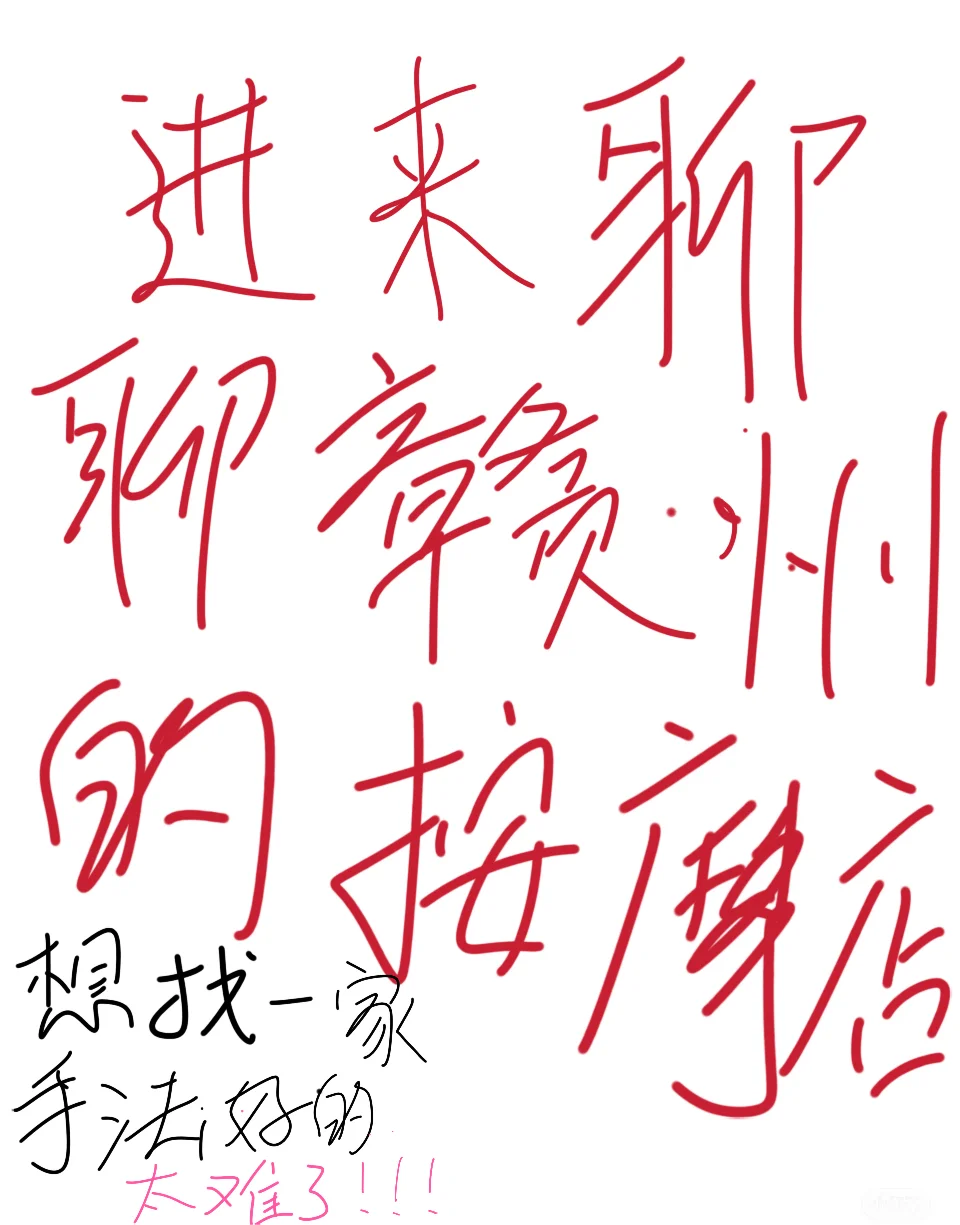 进来聊
聊赣州
的按摩店
想找一家
手法好的
太难了!!!